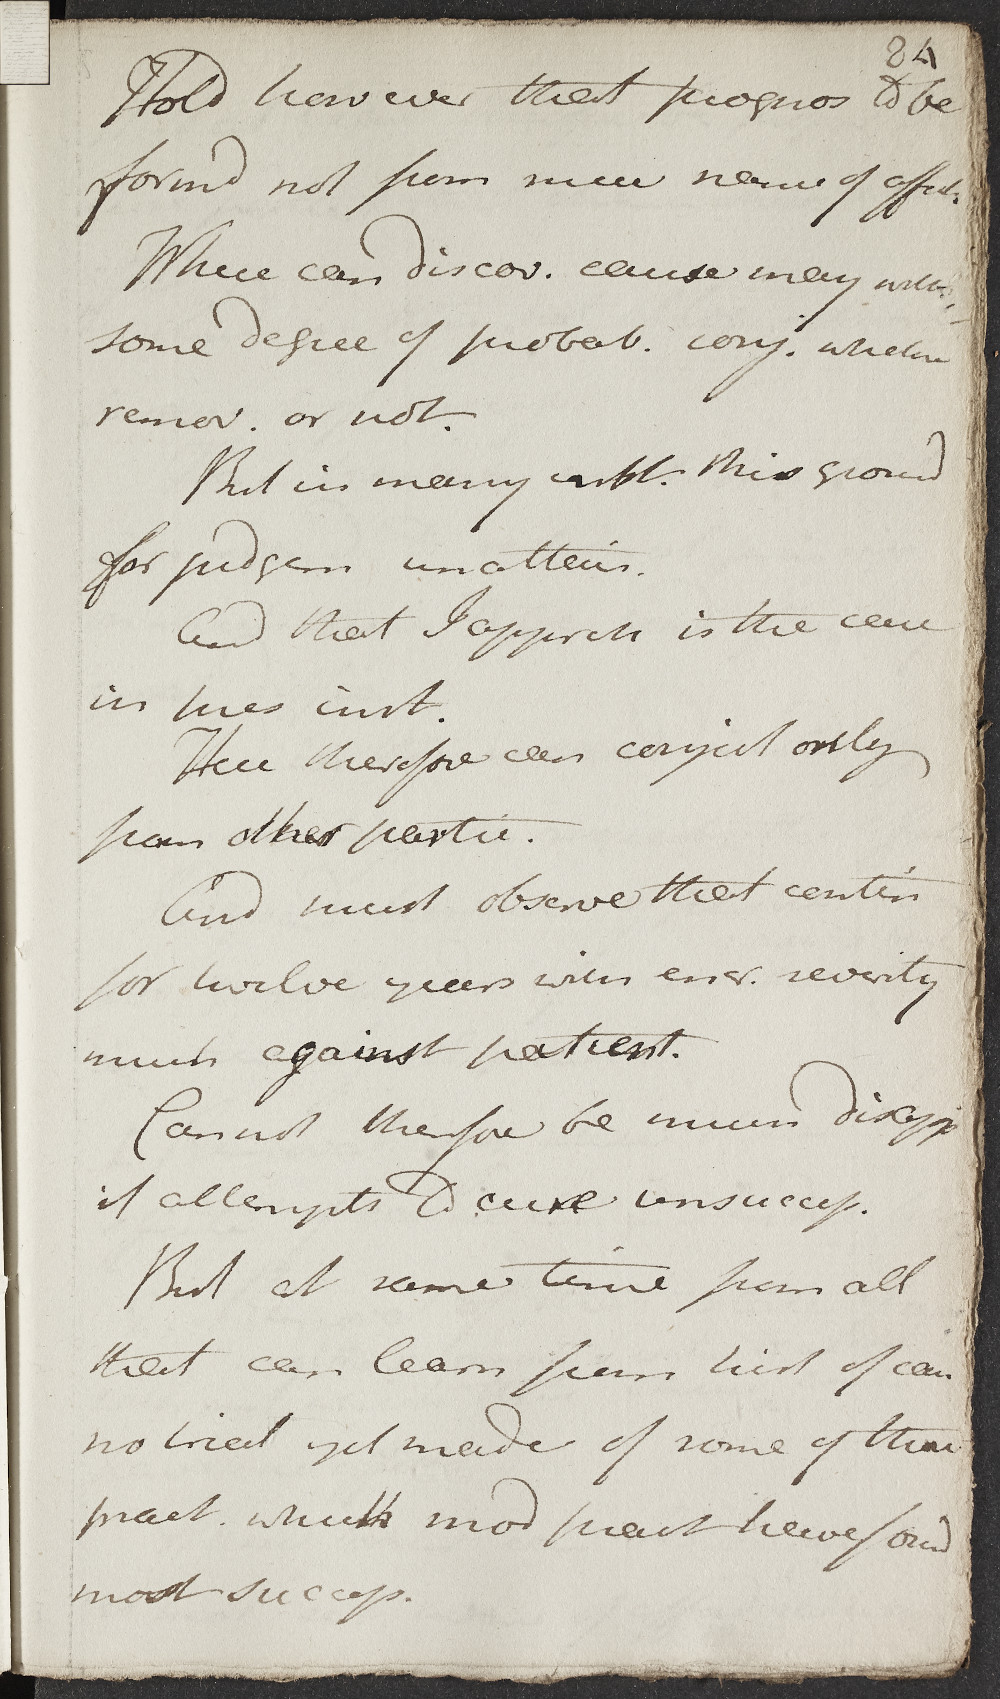 84
Hold however that prognos to be
formd not from mere name of affect.
Where can discov. cause may with
some degree of probab. conj. whether
remov. or not.
But in many inst. this ground
for judgem unattein.
And that I appreh is the case
in pres inst.
Here therefore can conject only
from other partic.
And must observe that contin
for twelve years with ener. severity
much against patient.
Cannot therefore be much disapp
if attempts to cure unsuccess.
But at same time from all
that can learn from hist of case
no trial yet made of some of those
pract. which mod pract have found
most success.